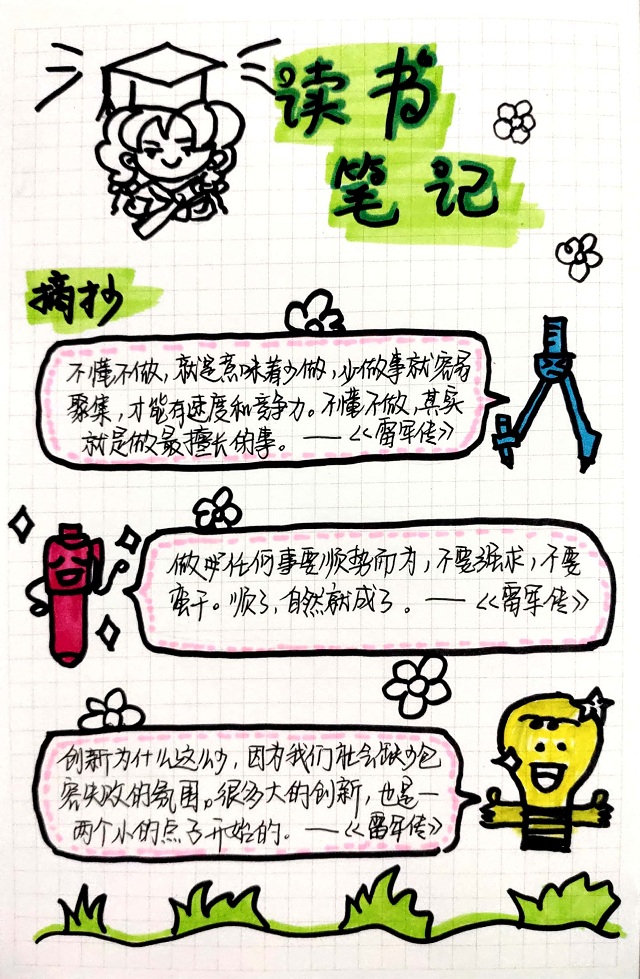 读书
笔记
摘抄
不懂不做，就是意味着少做，少做事就容易
聚集，才能有速度和竞争力。不懂不做，其实
就是做最擅长的事。——《雷军传》
做成任何事要顺势而为，不要强求，不要
蛮干。顺了，自然就成了。——《雷军传》
创新为什么这么少，因为我们社会缺少包
容失败的氛围。很多大的创新，也是一
两个小的点子开始的。——《雷军传》